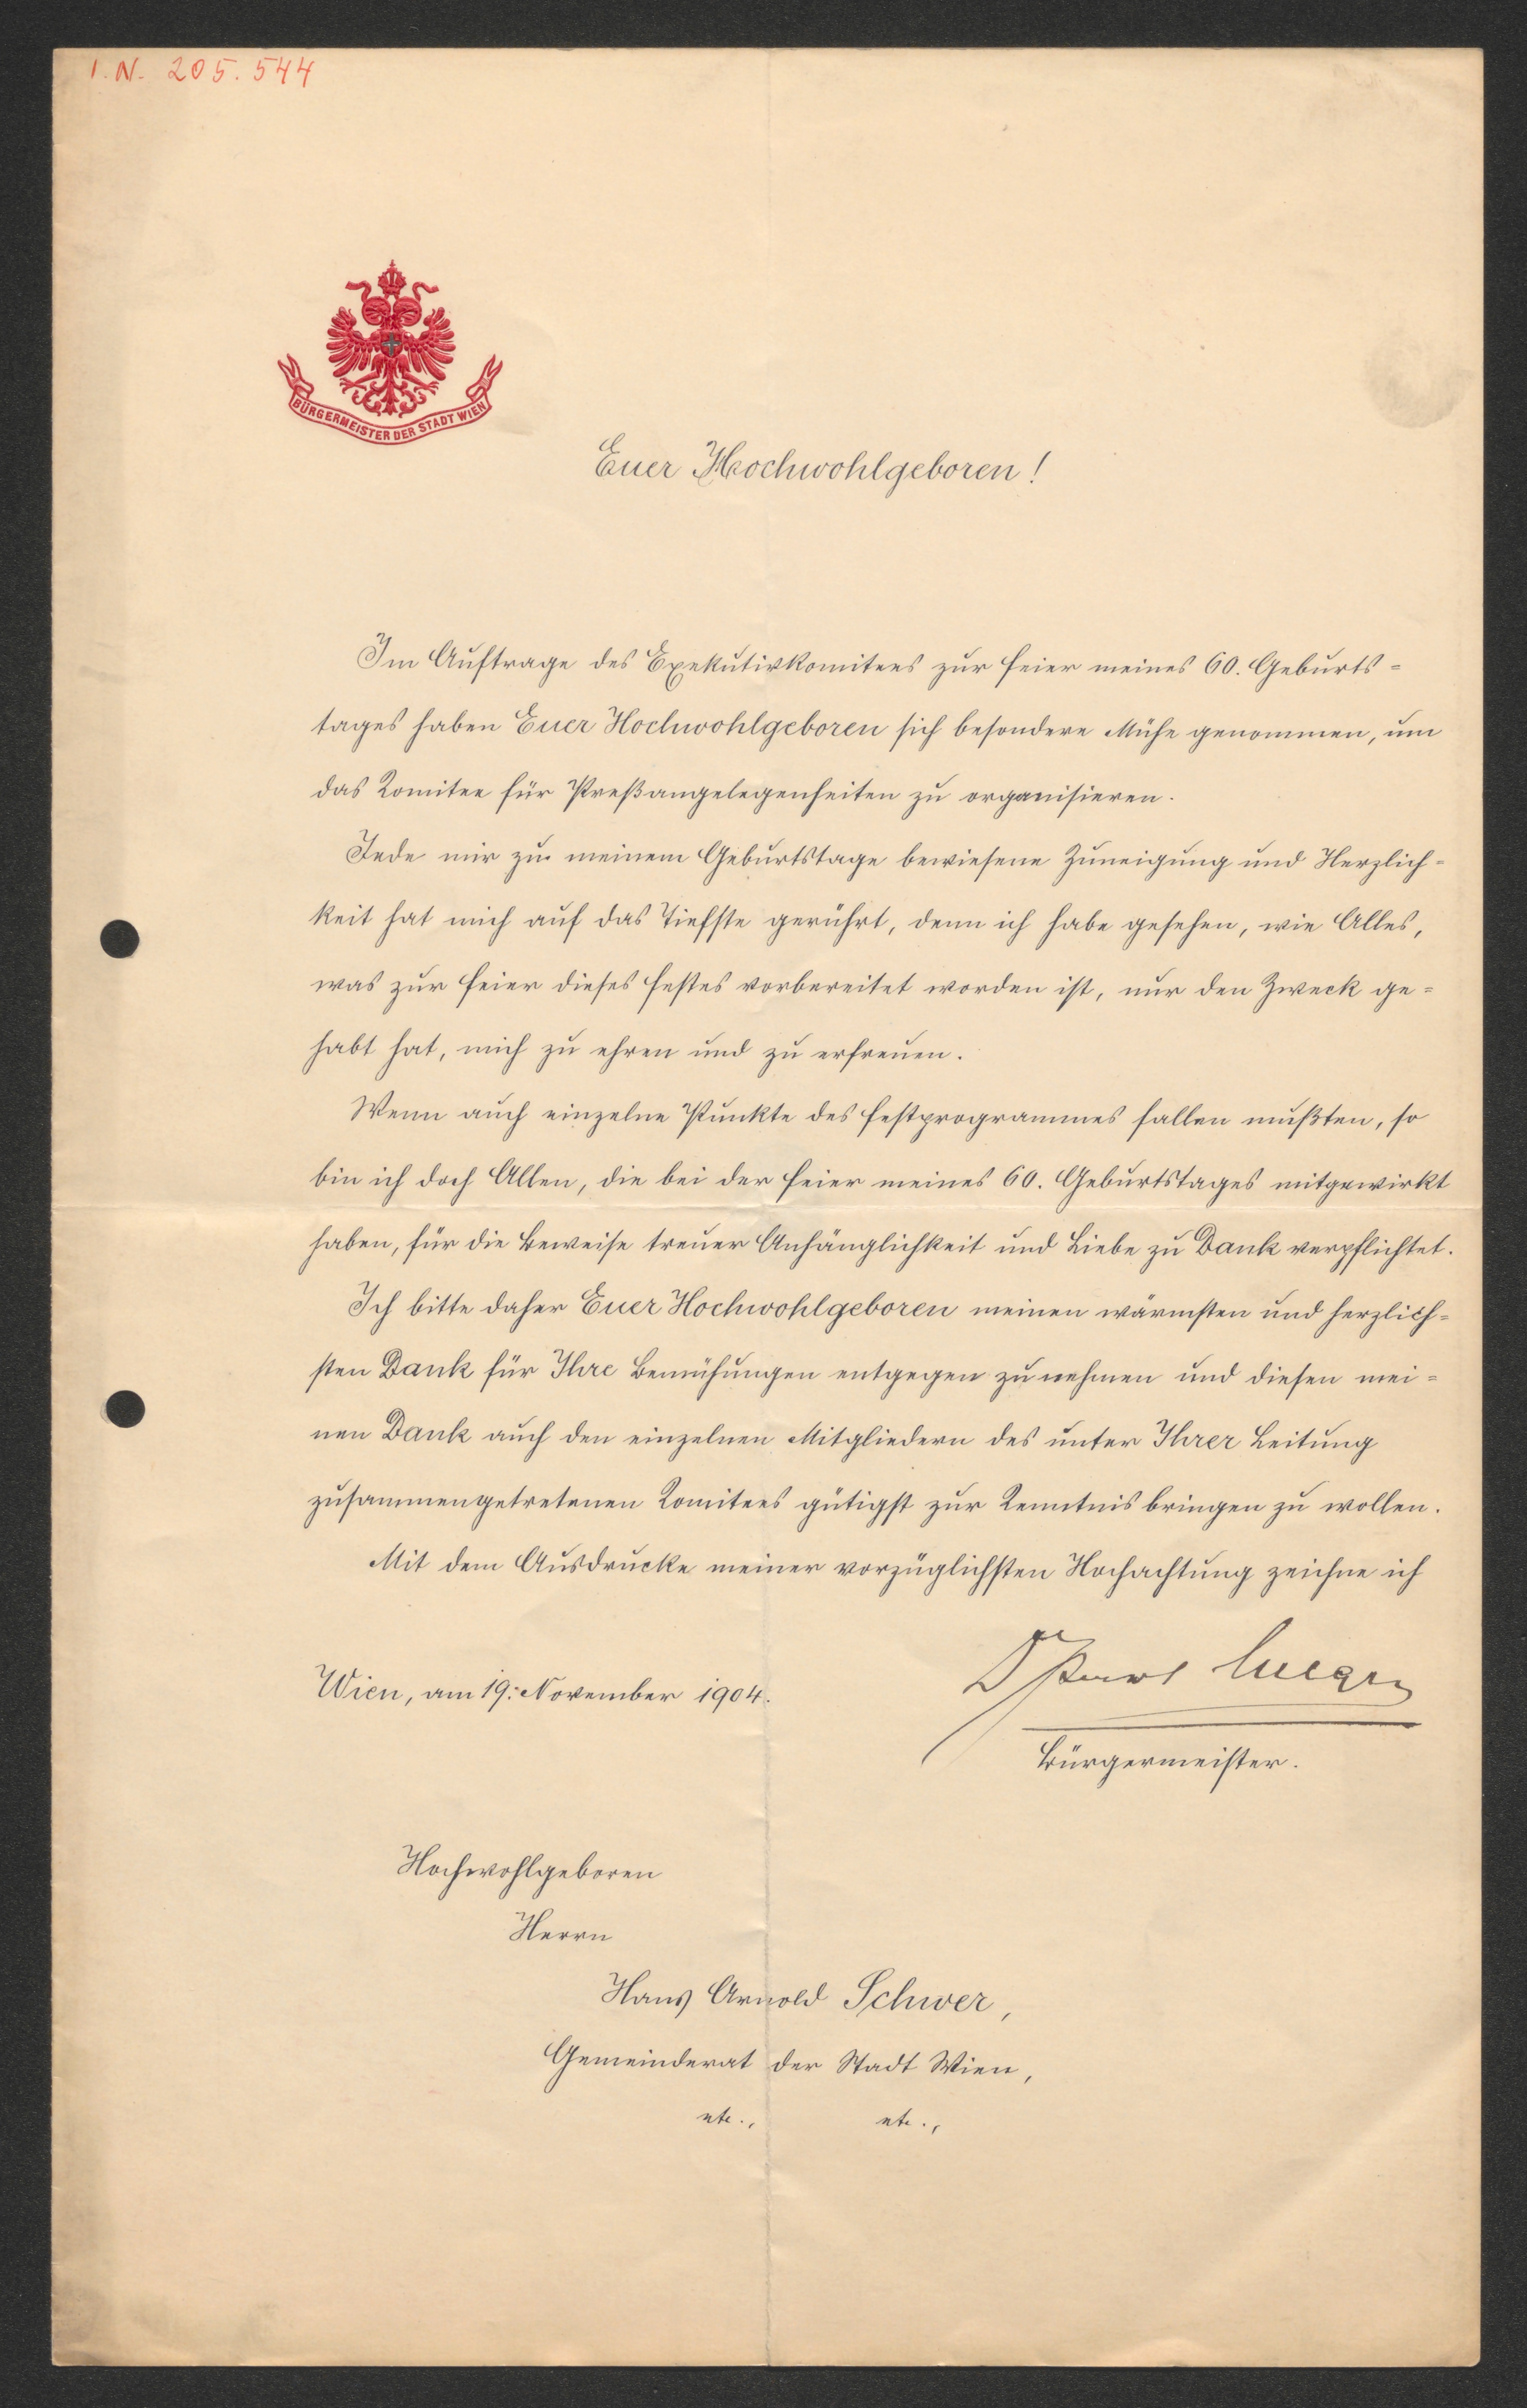 I.N. 205.544
BÜRGERMEISTER DER STADT WIEN
Euer Hochwohlgeboren!
Im Auftrage des Exekutivkomitees zur Feier meines 60. Geburts-
tages haben Euer Hochwohlgeboren sich besondere Mühe genommen, um
das Komitee für Preßangelegenheiten zu organisieren.
Jede mir zu meinem Geburtstage bewiesene Zuneigung und Herzlich-
keit hat mich auf das Tiefste gerührt, denn ich habe gesehen, wie Alles,
was zur Feier dieses Festes vorbereitet worden ist, nur den Zweck ge-
habt hat, mich zu ehren und zu erfreuen.
Wenn auch einzelne Punkte des Festprogrammes fallen mußten, so
bin ich doch Allen, die bei der Feier meines 60. Geburtstages mitgewirkt
haben, für die Beweise treuer Anhänglichkeit und Liebe zu Dank verpflichtet.
Ich bitte daher Euer Hochwohlgeboren meinen wärmsten und herzlich-
sten Dank für Ihre Bemühungen entgegen zu nehmen und diesen mei-
nen Dank auch den einzelnen Mitgliedern des unter Ihrer Leitung
zusammengetretenen Komitees gütigst zur Kenntnis bringen zu wollen.
Mit dem Ausdrucke meiner vorzüglichsten Hochachtung zeichne ich
Dr Karl Lueger
Wien, am 19. November 1904.
Bürgermeister.
Hochwohlgeboren
Herrn
Hans Arnold Schwer,
Gemeinderat der Stadt Wien,
etc., etc.,